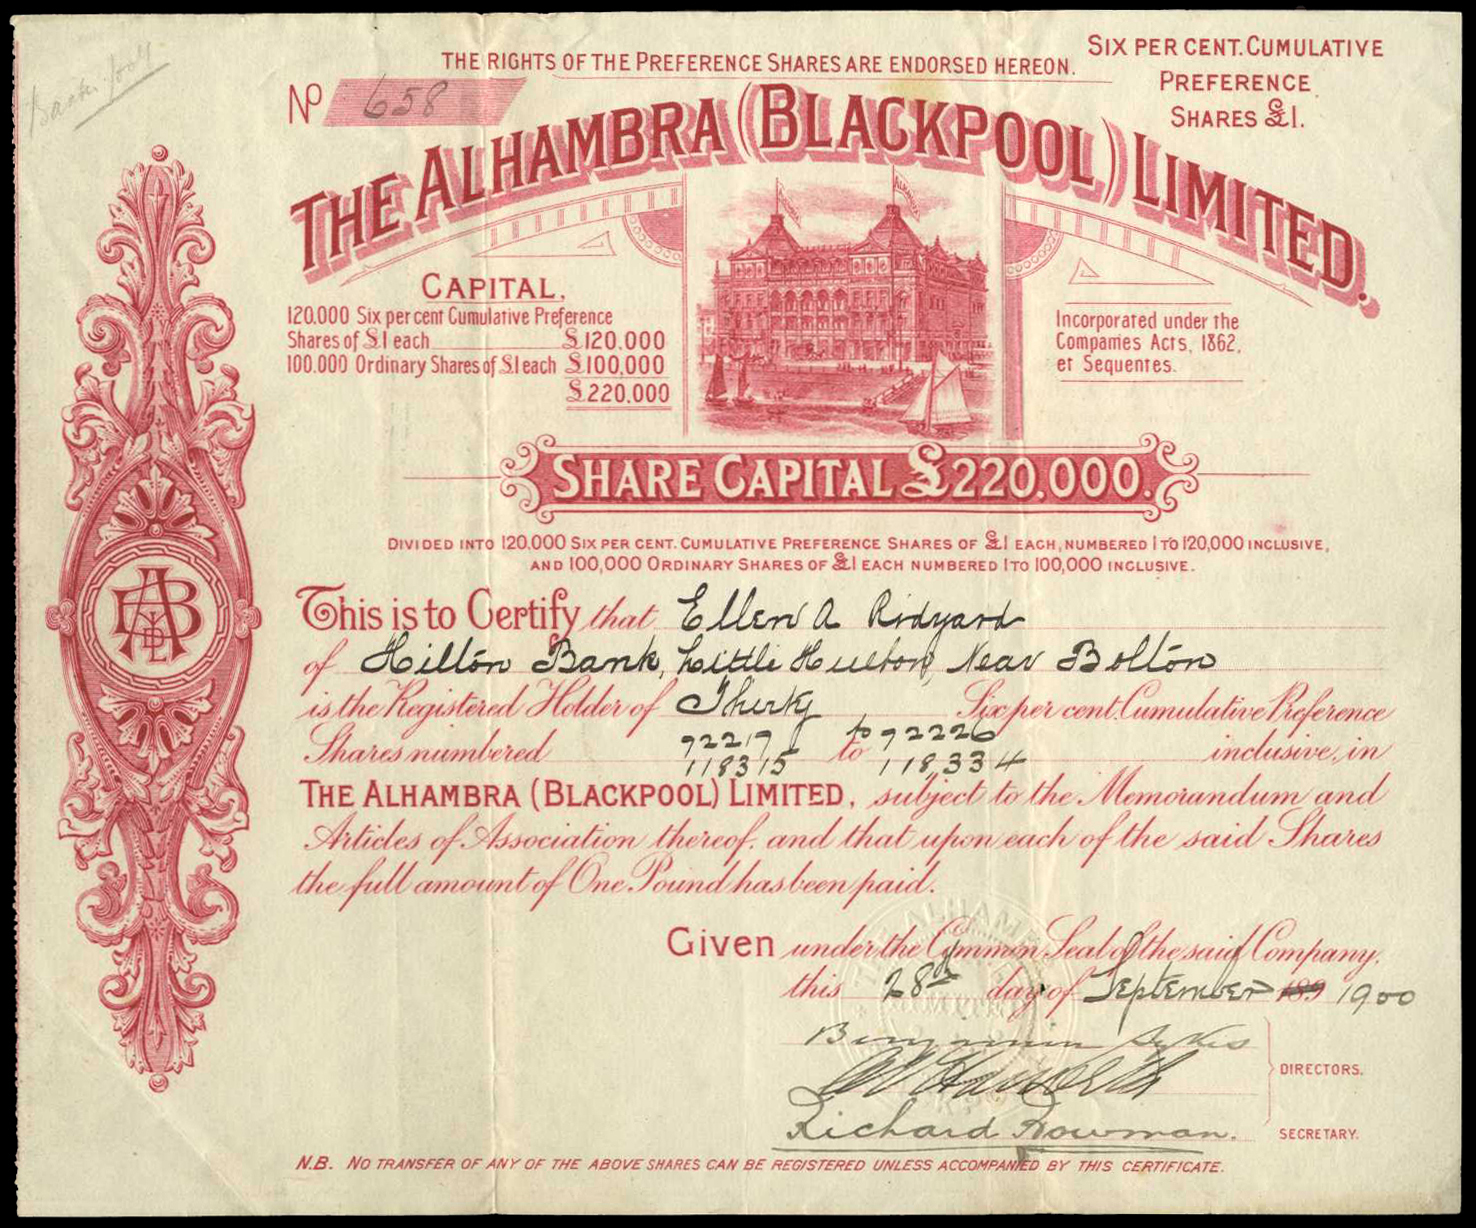 Back. foot
THE RIGHTS OF THE PREFERENCE SHARES ARE ENDORSED HEREON.
SIX PER CENT. CUMULATIVE
PREFERENCE
SHARES £1.
No 658
THE ALHAMBRA (BLACKPOOL) LIMITED.
CAPITAL.
120.000 Six per cent Cumulative Preference
Shares of £1 each £120.000
100.000 Ordinary Shares of £1 each £100,000
£220.000
ALHAMBRA
Incorporated under the
Companies Acts, 1862,
et Sequentes.
SHARE CAPITAL £220.000.
DIVIDED INTO 120.000 SIX PER CENT. CUMULATIVE PREFERENCE SHARES OF £1 EACH, NUMBERED 1 TO 120,000 INCLUSIVE,
AND 100,000 ORDINARY SHARES OF £1 EACH NUMBERED 1 TO 100,000 INCLUSIVE.
This is to Certify that Ellen A Ridyard
of Hilton Bank, Little Hulton, Near Bolton
is the Registered Holder of Thirty Six per cent. Cumulative Preference
Shares numbered 92217 to 92226
118315 to 118334 inclusive, in
THE ALHAMBRA (BLACKPOOL) LIMITED, subject to the Memorandum and
Articles of Association thereof. and that upon each of the said Shares
the full amount of One Pound has been paid.
Given under the Common Seal of the said Company.
this 28th day of September 189 1900
Benjamin Sykes
Haworth
DIRECTORS.
Richard Bowman.
SECRETARY.
N.B. NO TRANSFER OF ANY OF THE ABOVE SHARES CAN BE REGISTERED UNLESS ACCOMPANIED BY THIS CERTIFICATE.